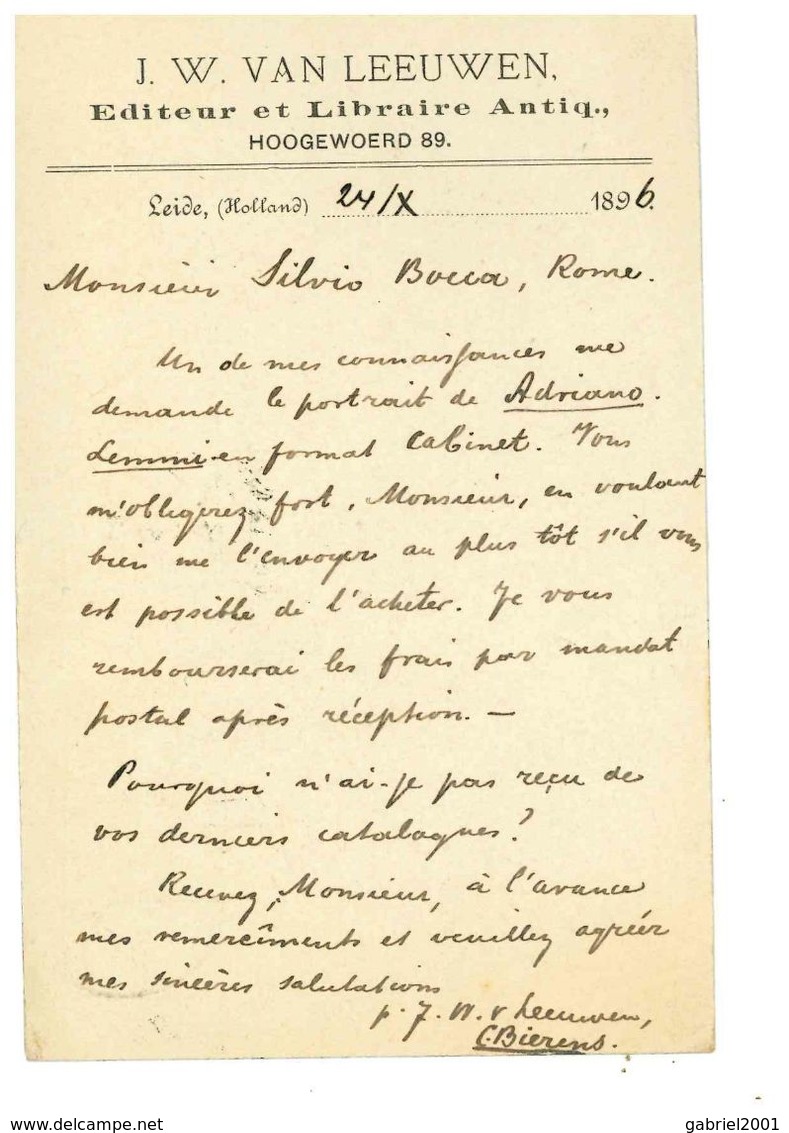 J. W. VAN LEEUWEN,
Editeur et Libraire Antiq.,
HOOGEWOERD 89.
Leide, (Holland) 24/X 1896.
Monsieur Silvio Bocca, Rome.
Un de mes connaissances me
demande le portrait de Adriano
Lemmi en format Cabinet. Vous
m'obligerez fort, Monsieur, en voulant
bien me l'envoyer au plus tôt s'il vous
est possible de l'acheter. Je vous
rembourserai les frais par mandat
postal après réception. —
Pourquoi n'ai-je pas reçu de
vos derniers catalogues?
Recevez, Monsieur, à l'avance
mes remercîments et veuillez agréér
mes sincères salutations
p. J. W. v Leeuwen,
C. Bierens.
gabriel2001